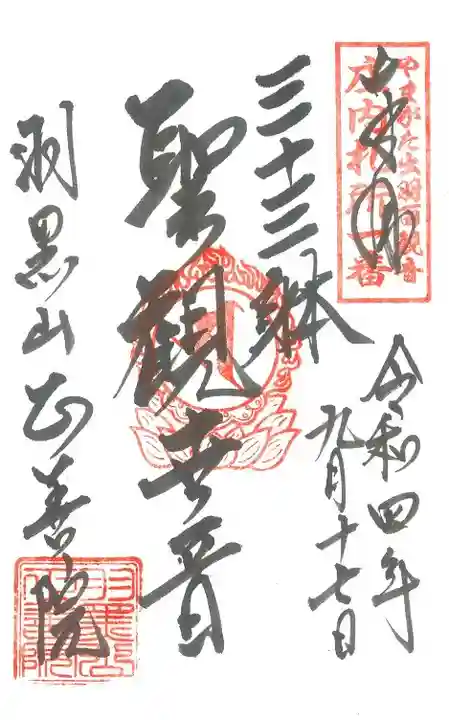 やまがた出羽百観音
庄内札所一番
奉拝
令和四年
九月十七日
三十三躰
聖観世音
羽黒山正善院